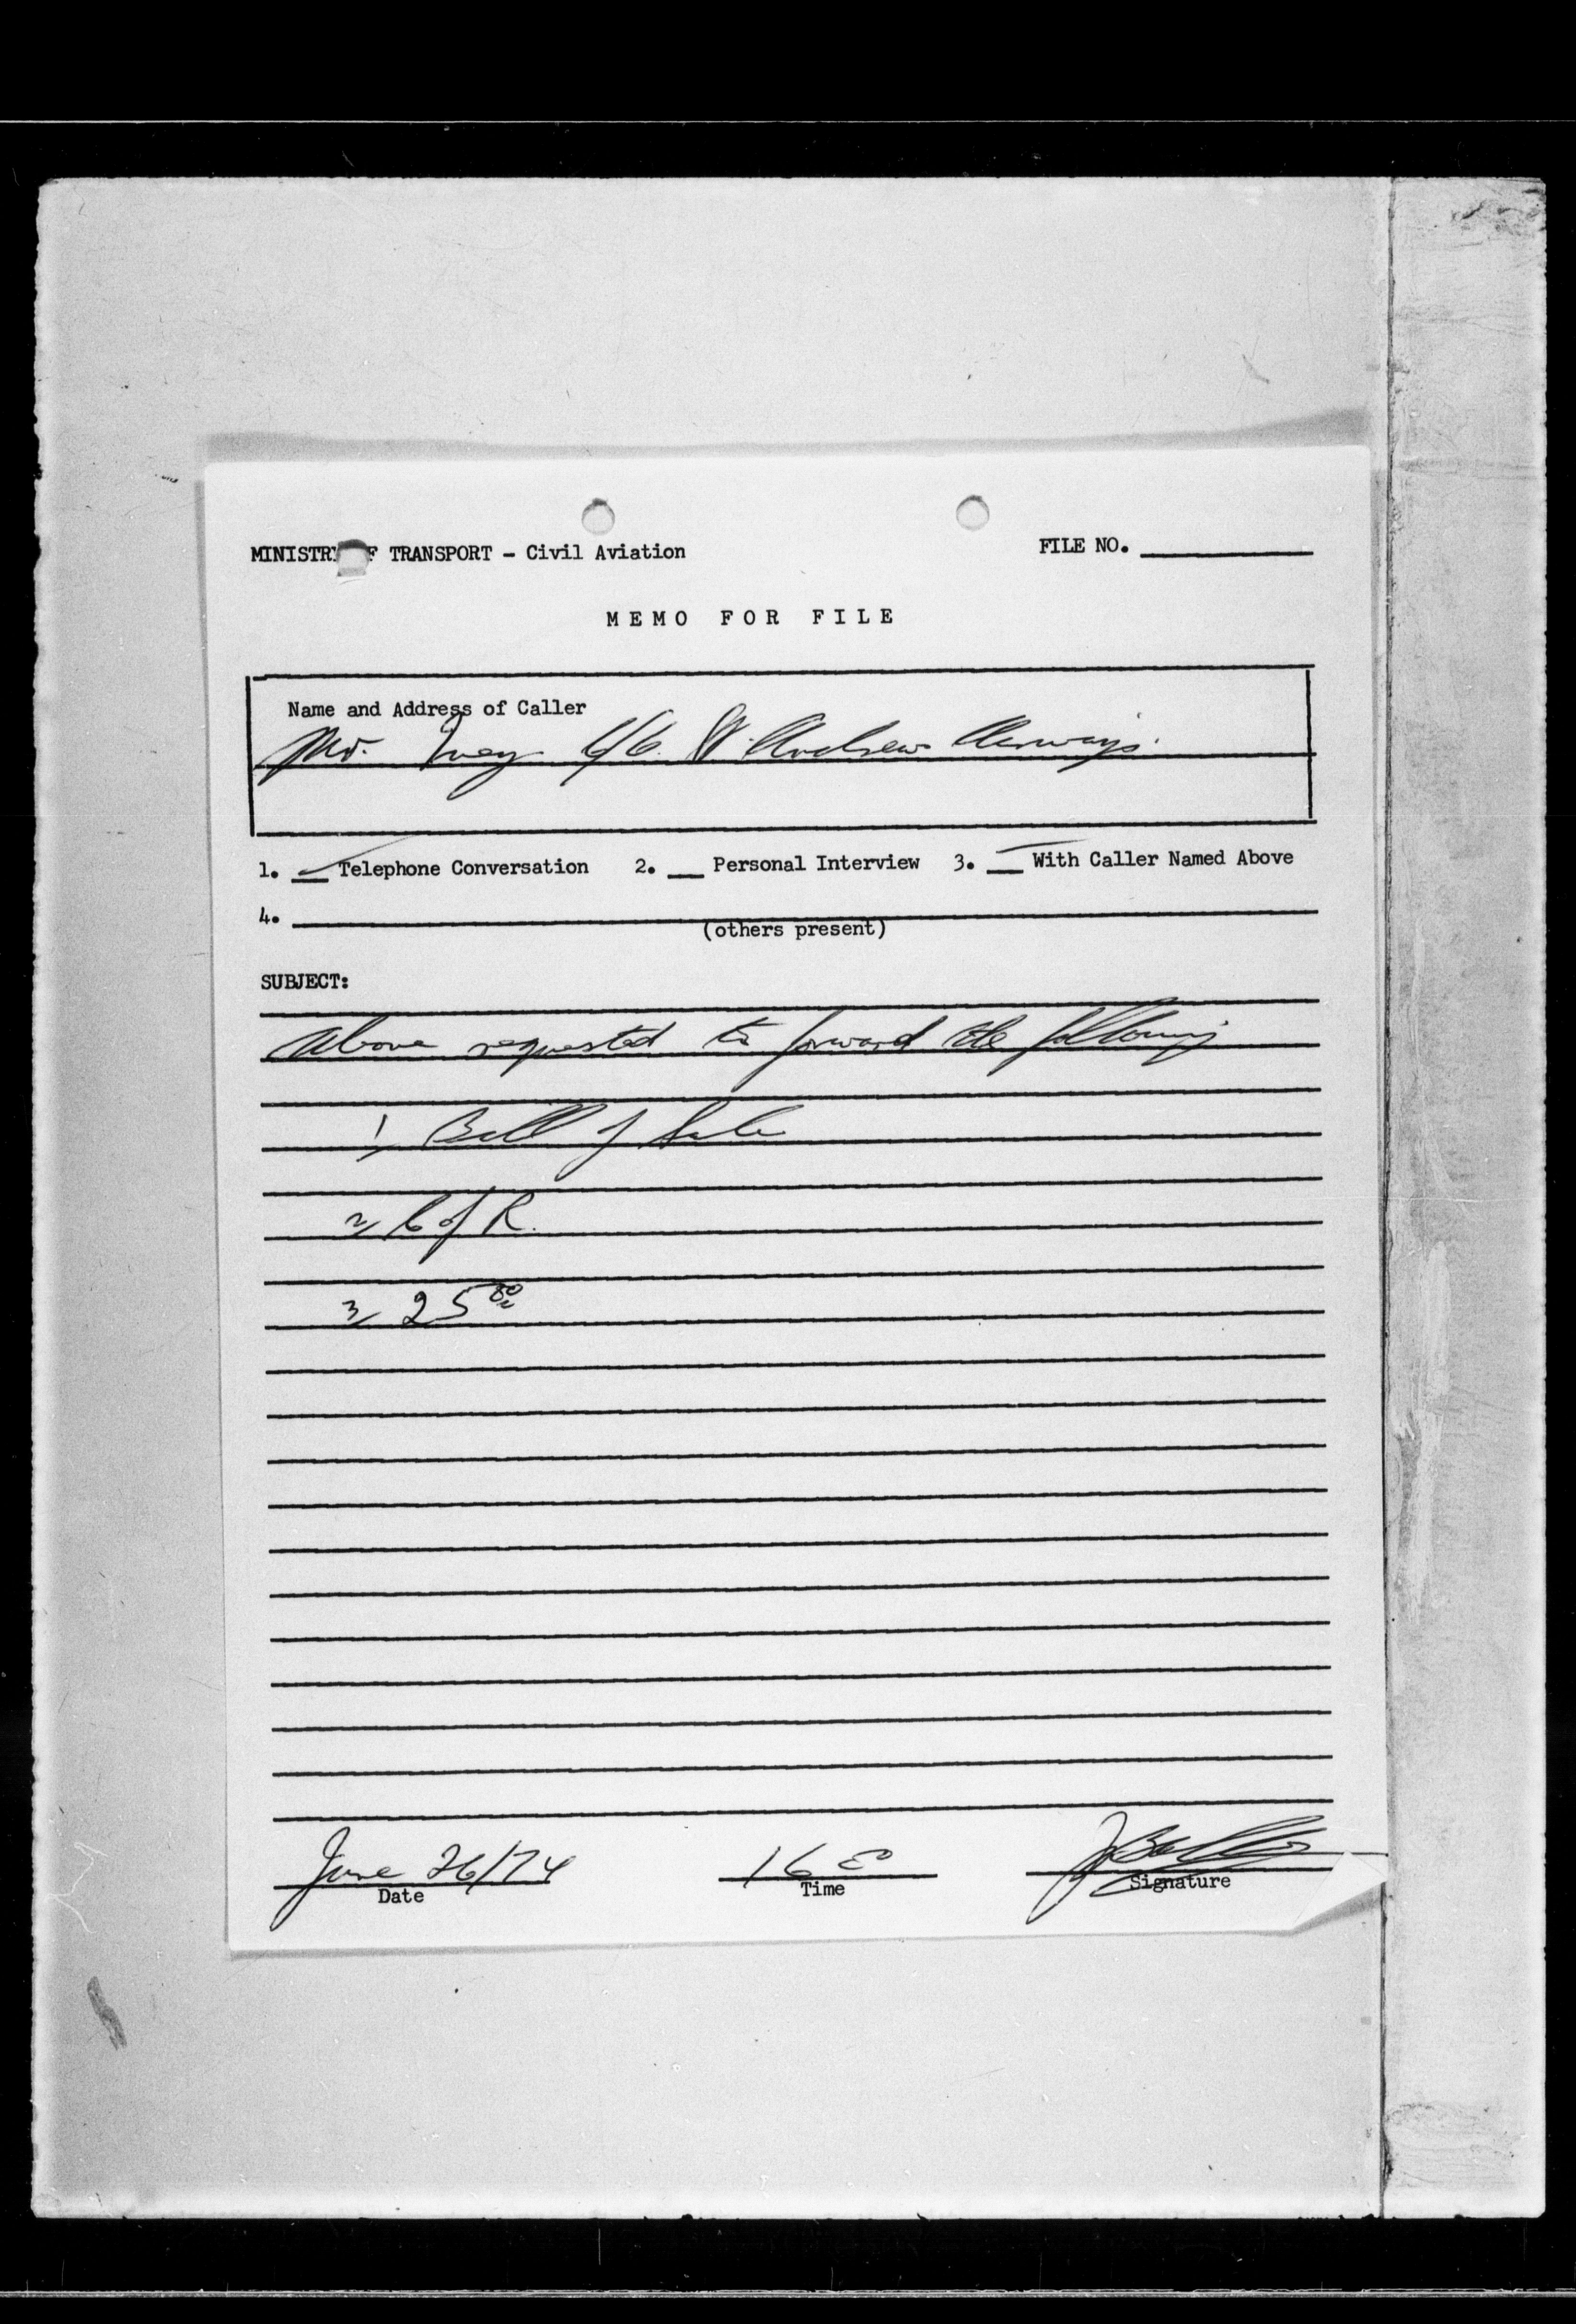 MINISTRY OF TRANSPORT - Civil Aviation FILE NO.
MEMO FOR FILE
Name and Address of Caller
Mr. Ivey C/O. St. Andrews Airways.
1. Telephone Conversation 2. Personal Interview 3. With Caller Named Above
4.
(others present)
SUBJECT:
Above requested to forward the following
1/ Bill of Sale
2/ C of R.
3/ 25 00
June 26/74 16 00
Date Time Signature